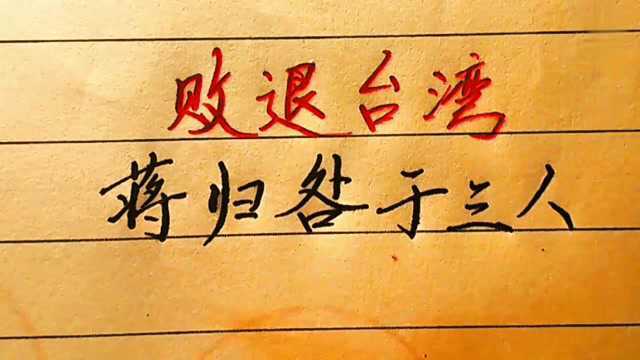 败退台湾
蒋归咎于三人